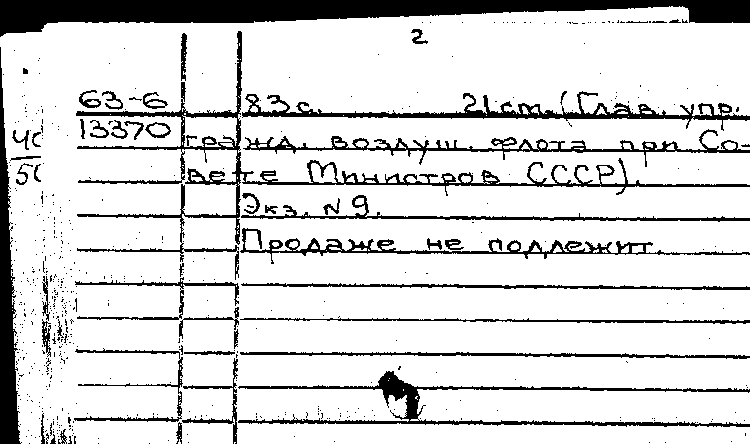 2
63-6 83 с. 21 cm. (Глав. упр.
13370 гражд. воздуш. флота при Со-
вете Министров СССР).
Экз. N 9.
Продаже не подлежит.